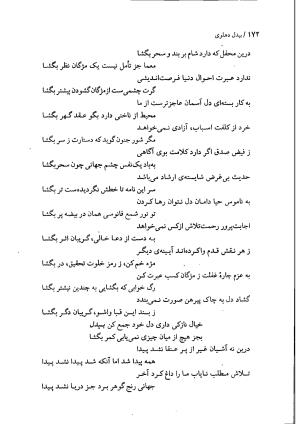 ۱۷۲ / بیدل دهلوی
درین محفل که دارد شام بر بند و سحر بگشا
معما جز تأمل نیست یک مژگان نظر بگشا
ندارد عبرت احوال دنیا فرصت‌اندیشی
گرت چشمی‌ست از مژگان گشودن پیشتر بگشا
به کار بسته‌ای دل آسمان عاجزترست از ما
محیط از ناخنی دارد بگو عقد گهر بگشا
خرد از کلفت اسباب، آزادی نمی‌خواهد
مگر شور جنون گوید که دستارت ز سر بگشا
ز فیض صدق اگر دارد کلامت بوی آگاهی
به‌یاد یک‌نفس چشم جهانی چون سحر بگشا
حدیث بی‌غرض شایسته‌ی ارشاد می‌باشد
سر این نامه تا خطش نگردیده‌ست تر بگشا
به ناموس حیا دامان دل نتوان رها کردن
تو نور شمع فانوسی همان در بیضه پر بگشا
اجابت‌پرور رحمت‌تلاش از کس نمی‌خواهد
به دست از دعا خالی، گریبان اثر بگشا
ز هر نقش قدم واکرده‌اند آیینه‌ی دیگر
مژه خم کن، ز رمز خلوت تحقیق، در بگشا
به عزم چاره غفلت ز مژگان کسب عبرت کن
رگ خوابی که بگشایی به چندین نیشتر بگشا
گشاد دل به چاک پیرهن صورت نمی‌بندد
ز بسند این قبا واشو، گریبان دگر بگشا
خیال نازکی داری دل خود جمع کن بیدل
بجز هیچ از میان چیزی نمی‌یابی کمر بگشا
درین نه آشیان غیر از پر عنقا نشد پیدا
همه پیدا شد اما آنکه شد پیدا نشد پیدا
تلاش مطلب نایاب ما را داغ کرد آخر
جهانی رنج گوهر برد جز دریا نشد پیدا